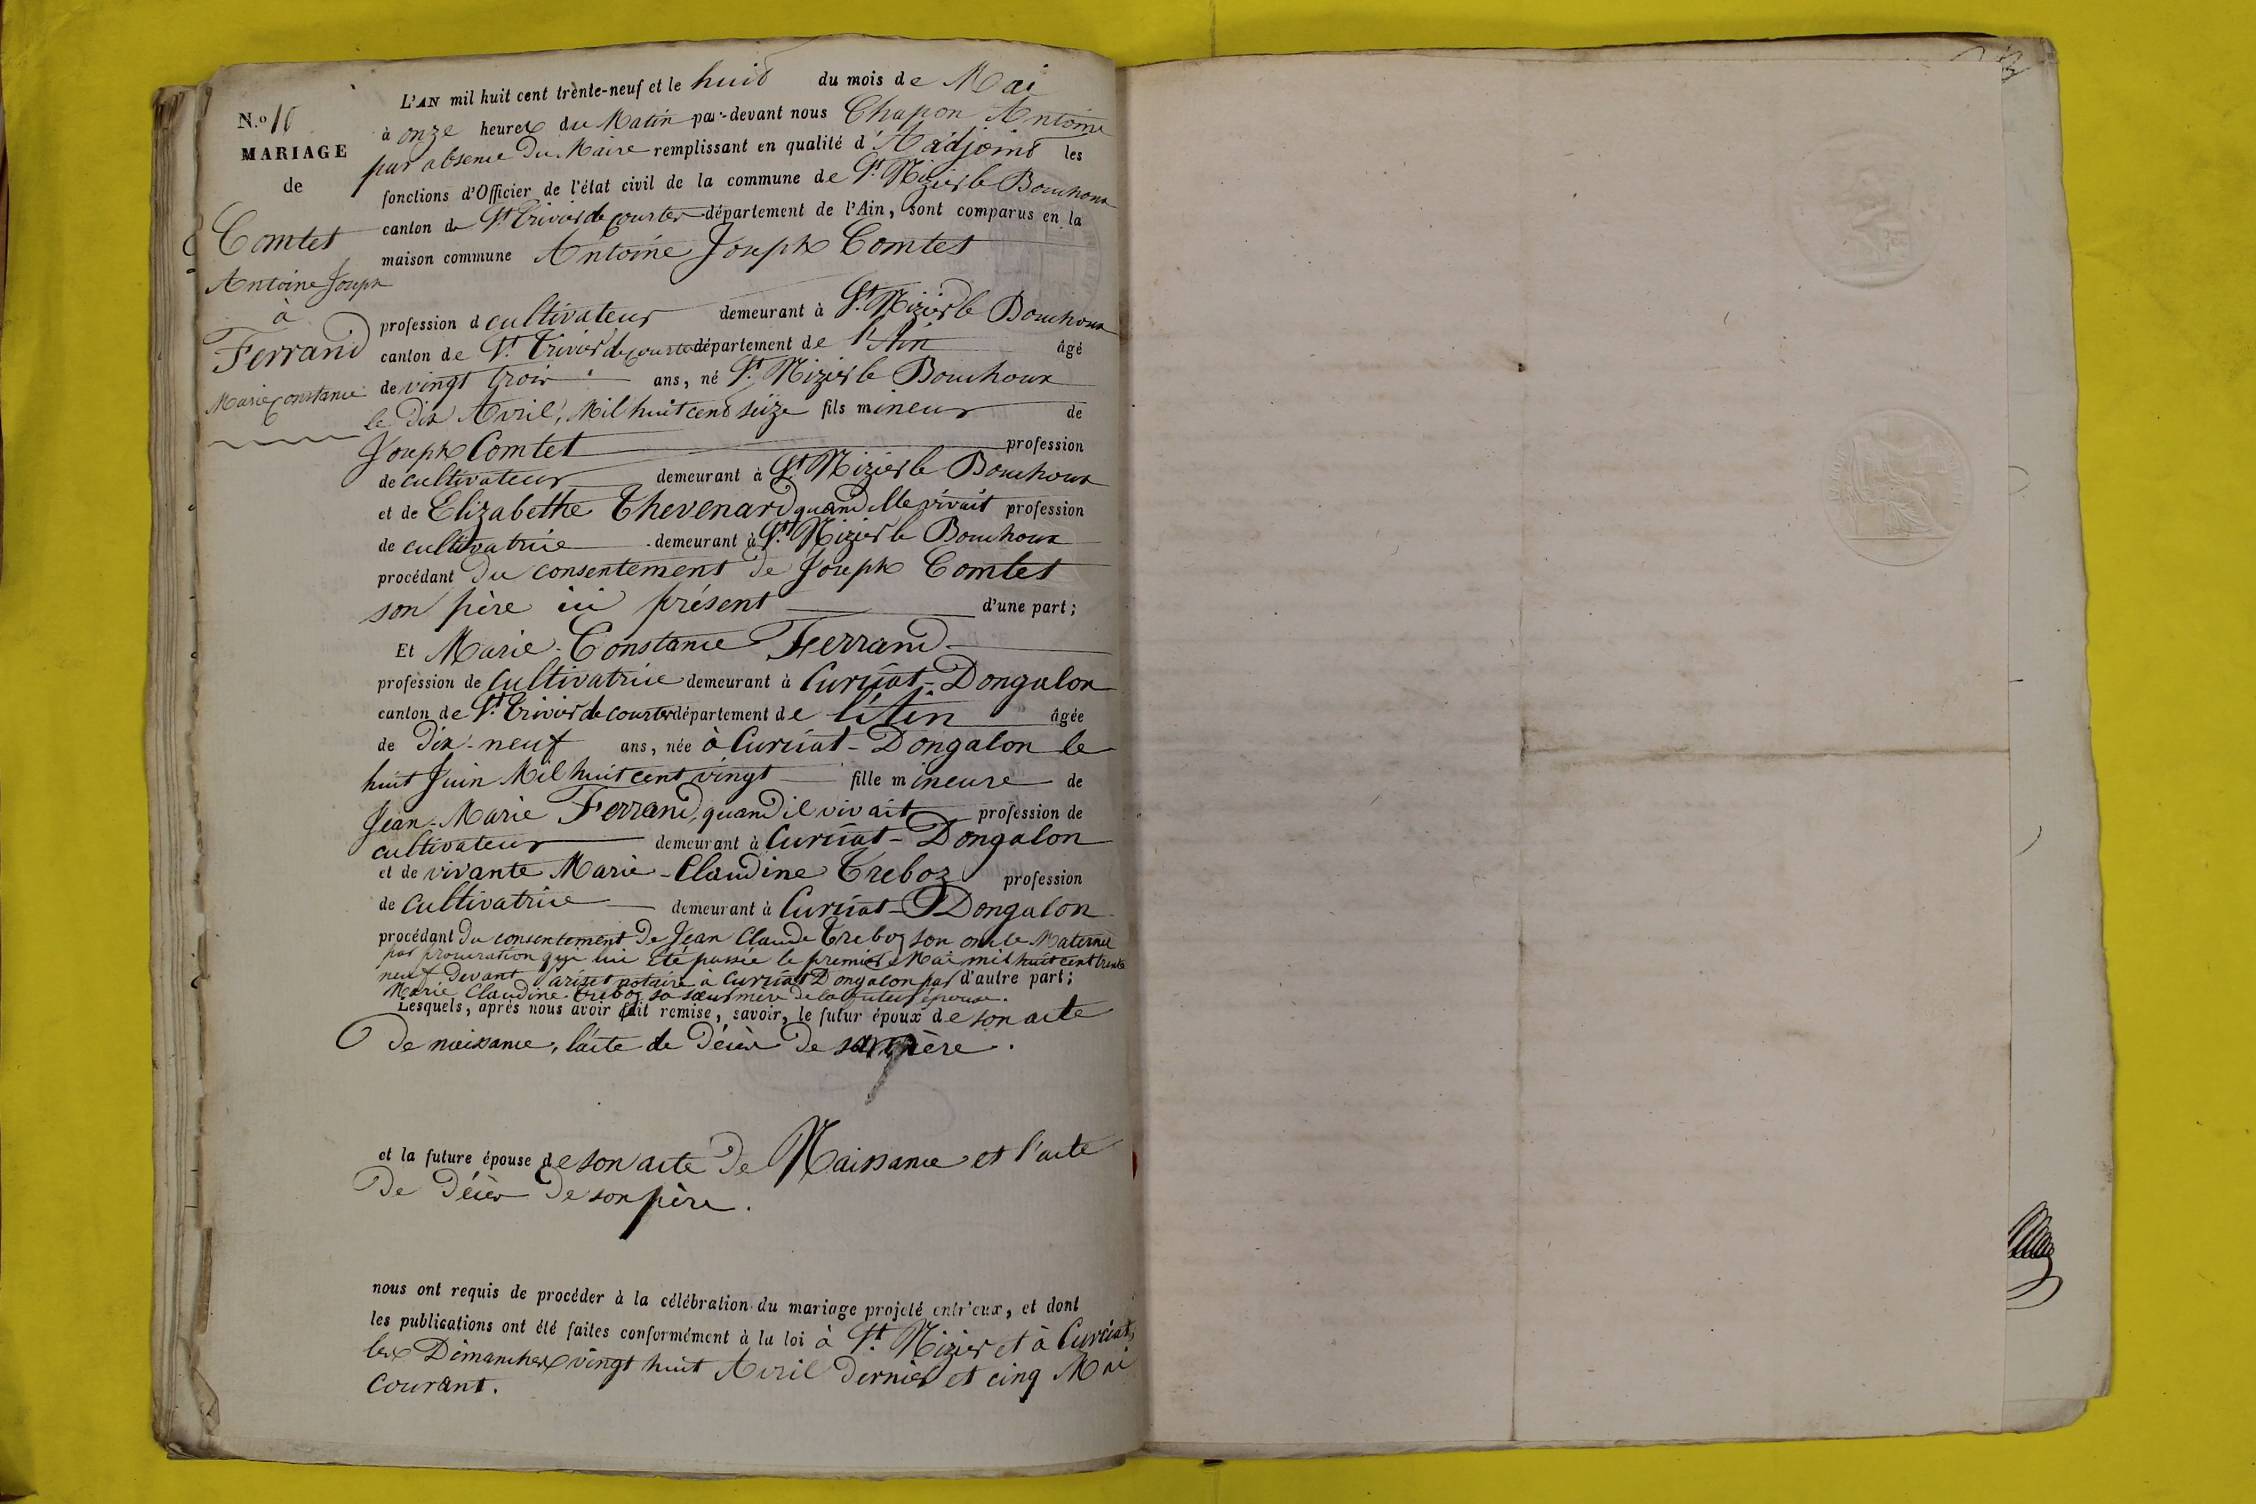 N.o
MARIAGE
de
Comtet
Antoine Joseph
à
Ferrand
Marie Constance
L'AN mil huit cent trente-neuf et le huit du mois de Mai
à onze heures du Matin par-devant nous Chapon Antoine
par absence du Maire remplissant en qualité d'Adjoint les
fonctions d'Officier de l'état civil de la commune de St. Nizier le Bouchoux
canton de St. Trivier de Courtes département de l'Ain, sont comparus en la
maison commune Antoine Joseph Comtet
profession d cultivateur demeurant à St. Nizier le Bouchoux
canton de St. Trivier de Courtes département de l'Ain âgé
de vingt trois ans, né St. Nizier le Bouchoux
le dix Avril, Mil huit cent seize fils mineur de
Joseph Comtet profession
de cultivateur demeurant à St. Nizier le Bouchoux
et de Elizabethe Thevenard quand elle vivait profession
de cultivatrice demeurant à St. Nizier le Bouchoux
procédant du consentement de Joseph Comtet
son père ici présent d'une part;
Et Marie-Constance Ferrand
profession de cultivatrice demeurant à Curciat-Dongalon
canton de St. Trivier de Courtes département de l'Ain âgée
de dix-neuf ans, née à Curciat-Dongalon le
huit Juin Mil huit cent vingt fille mineure de
Jean-Marie Ferrand, quand il vivait profession de
cultivateur demeurant à Curciat-Dongalon
et de vivante Marie-Claudine Treboz profession
de cultivatrice demeurant à Curciat-Dongalon
procédant du consentement de Jean Claude Treboz son oncle Maternel
par procuration qui lui été passée le premier Mai mil huit cent trente
neuf devant notaire à Curciat Dongalon par d'autre part;
Marie Claudine Treboz sa sœur mère de la future épouse.
Lesquels, après nous avoir fait remise, savoir, le futur époux de son acte
de naissance, l'acte de décès de sa mère.
et la future épouse de son acte de Naissance et l'acte
de décès de son père.
nous ont requis de procéder à la célébration du mariage projeté entr'eux, et dont
les publications ont été faites conformément à la loi à St. Nizier et à Curciat,
les Dimanches vingt huit Avril dernier et cinq Mai
courant.